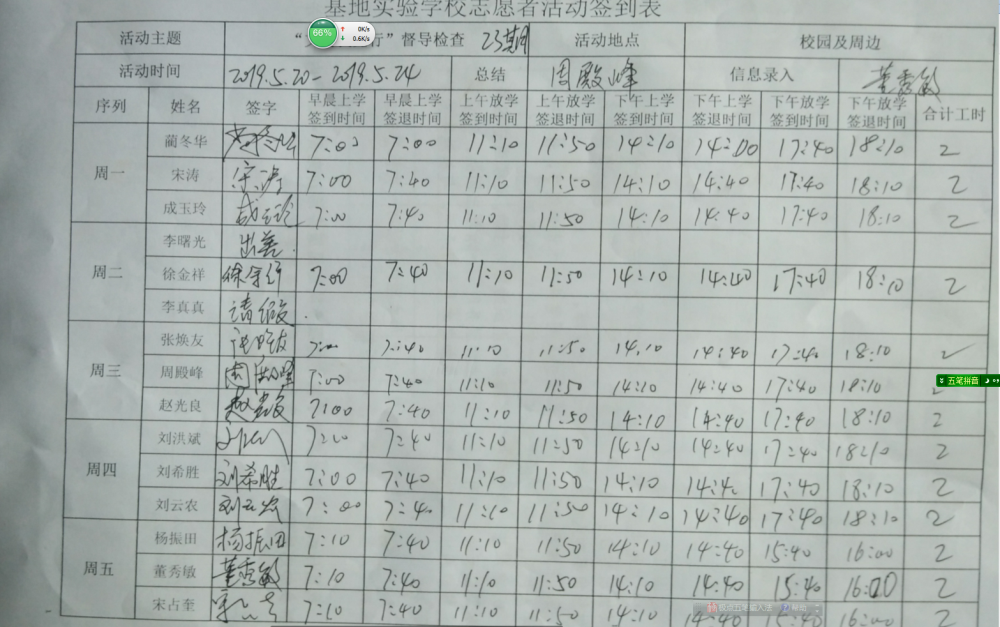 基地实验学校志愿者活动签到表
活动主题 行”督导检查 23期 活动地点 校园及周边
活动时间 2019.5.20-2019.5.24 总结 周殿峰 信息录入 董秀敏
序列 姓名 签字 早晨上学签到时间 早晨上学签退时间 上午放学签到时间 上午放学签退时间 下午上学签到时间 下午上学签退时间 下午放学签到时间 下午放学签退时间 合计工时
周一 蔺冬华 7:00 7:00 11:10 11:50 14:10 14:00 17:40 18:10 2
宋涛 宋涛 7:00 7:40 11:10 11:50 14:10 14:40 17:40 18:10 2
成玉玲 成玉玲 7:00 7:40 11:10 11:50 14:10 14:40 17:40 18:10 2
周二 李曙光 出差.
徐金祥 徐金祥 7:00 7:40 11:10 11:50 14:10 14:40 17:40 18:10 2
李真真 请假.
周三 张焕友 7:00 7:40 11:10 11:50 14:10 14:40 17:40 18:10 2
周殿峰 周殿峰 7:00 7:40 11:10 11:50 14:10 14:40 17:40 18:10
赵光良 7:00 7:40 11:10 11:50 14:10 14:40 17:40 18:10 2
周四 刘洪斌 7:00 7:40 11:10 11:50 14:10 14:40 17:40 18:10 2
刘希胜 刘希胜 7:00 7:40 11:10 11:50 14:10 14:4 17:40 18:10 2
刘云农 刘云农 7:00 7:40 11:10 11:50 14:10 14:40 17:40 18:10 2
周五 杨振田 杨振田 7:10 7:40 11:10 11:50 14:10 14:40 15:40 16:00 2
董秀敏 董秀敏 7:10 7:40 11:10 11:50 14:10 14:40 15:40 16:00 2
宋占奎 7:10 7:40 11:10 11:50 14:10 14:40 15:40 16:00 2
66% 0K/s
0.6K/s
五笔拼音
极点五笔输入法 帮助